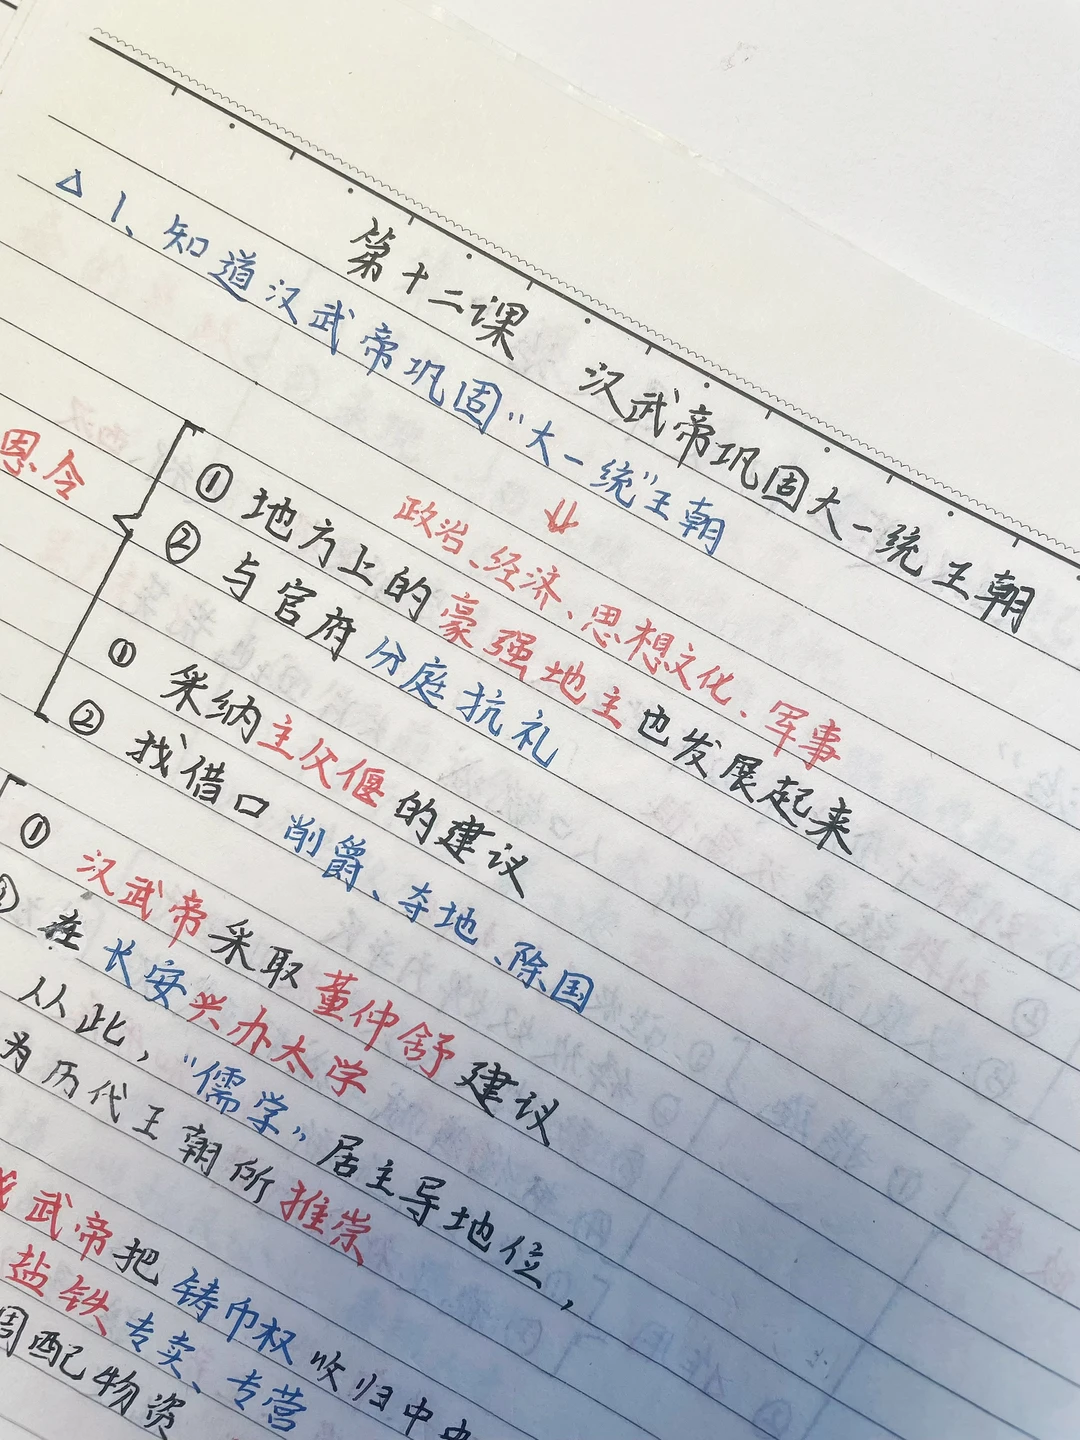 第十二课 汉武帝巩固大一统王朝
△1、知道汉武帝巩固“大一统”王朝
⇓
政治、经济、思想文化、军事
恩令
①地方上的豪强地主也发展起来
②与官府分庭抗礼
①采纳主父偃的建议
②找借口削爵、夺地、除国
①汉武帝采取董仲舒建议
②在长安兴办太学
从此，“儒学”居主导地位，
为历代王朝所推崇
武帝把铸币权收归中央
盐铁专卖、专营
调配物资